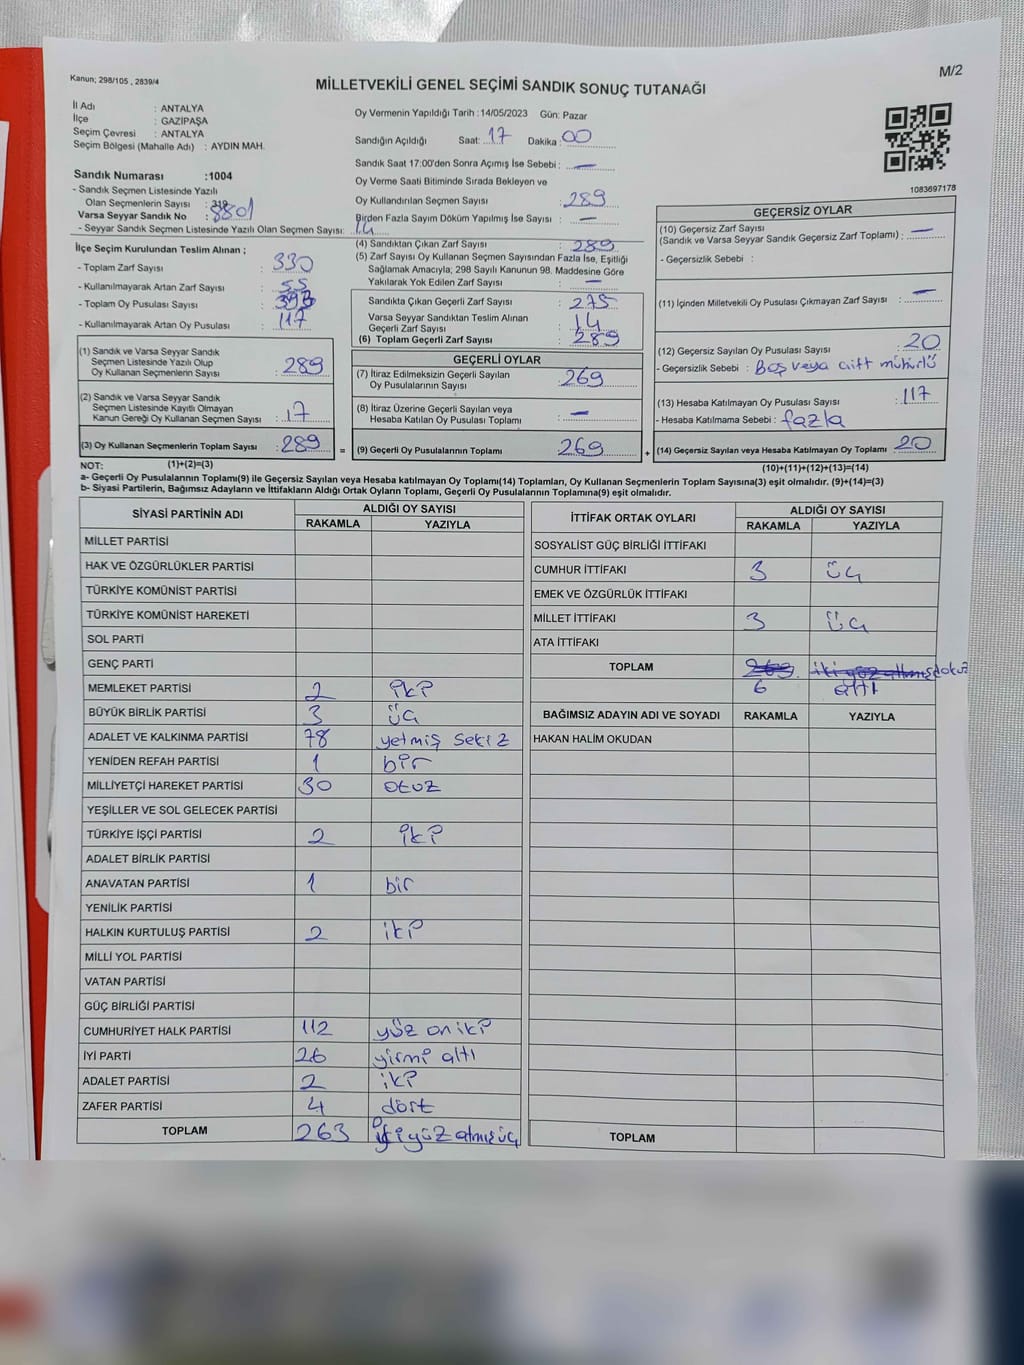 Kanun; 298/105 , 2839/4
M/2
MİLLETVEKİLİ GENEL SEÇİMİ SANDIK SONUÇ TUTANAĞI
İl Adı : ANTALYA
İlçe : GAZİPAŞA
Seçim Çevresi : ANTALYA
Seçim Bölgesi (Mahalle Adı) : AYDIN MAH.
Sandık Numarası :1004
- Sandık Seçmen Listesinde Yazılı
Olan Seçmenlerin Sayısı :
Varsa Seyyar Sandık No : 8801
- Seyyar Sandık Seçmen Listesinde Yazılı Olan Seçmen Sayısı: 14
Oy Vermenin Yapıldığı Tarih :14/05/2023 Gün: Pazar
Sandığın Açıldığı Saat: 17 Dakika : 00
Sandık Saat 17:00'den Sonra Açımış İse Sebebi : —
Oy Verme Saati Bitiminde Sırada Bekleyen ve
Oy Kullandırılan Seçmen Sayısı : 289
Birden Fazla Sayım Döküm Yapılmış İse Sayısı : —
1083697178
İlçe Seçim Kurulundan Teslim Alınan ;
- Toplam Zarf Sayısı : 330
- Kullanılmayarak Artan Zarf Sayısı : 55
- Toplam Oy Pusulası Sayısı :
- Kullanılmayarak Artan Oy Pusulası : 117
(1) Sandık ve Varsa Seyyar Sandık
Seçmen Listesinde Yazılı Olup
Oy Kullanan Seçmenlerin Sayısı : 289
(2) Sandık ve Varsa Seyyar Sandık
Seçmen Listesinde Kayıtlı Olmayan
Kanun Gereği Oy Kullanan Seçmen Sayısı : 17
(3) Oy Kullanan Seçmenlerin Toplam Sayısı : 289
(4) Sandıktan Çıkan Zarf Sayısı : 289
(5) Zarf Sayısı Oy Kullanan Seçmen Sayısından Fazla İse, Eşitliği
Sağlamak Amacıyla; 298 Sayılı Kanunun 98. Maddesine Göre
Yakılarak Yok Edilen Zarf Sayısı : —
Sandıkta Çıkan Geçerli Zarf Sayısı : 275
Varsa Seyyar Sandıktan Teslim Alınan
Geçerli Zarf Sayısı : 14
(6) Toplam Geçerli Zarf Sayısı : 289
GEÇERLİ OYLAR
(7) İtiraz Edilmeksizin Geçerli Sayılan
Oy Pusulalarının Sayısı : 269
(8) İtiraz Üzerine Geçerli Sayılan veya
Hesaba Katılan Oy Pusulaları Toplamı : —
= (9) Geçerli Oy Pusulalarının Toplamı : 269
GEÇERSİZ OYLAR
(10) Geçersiz Zarf Sayısı
(Sandık ve Varsa Seyyar Sandık Geçersiz Zarf Toplamı) : —
- Geçersizlik Sebebi :
(11) İçinden Milletvekili Oy Pusulası Çıkmayan Zarf Sayısı : —
(12) Geçersiz Sayılan Oy Pusulası Sayısı : 20
- Geçersizlik Sebebi : Boş veya çift mühürlü
(13) Hesaba Katılmayan Oy Pusulası Sayısı : 117
- Hesaba Katılmama Sebebi : fazla
+ (14) Geçersiz Sayılan veya Hesaba Katılmayan Oy Toplamı : 20
NOT: (1)+(2)=(3)
(10)+(11)+(12)+(13)=(14)
a- Geçerli Oy Pusulalarının Toplamı(9) ile Geçersiz Sayılan veya Hesaba katılmayan Oy Toplamı(14) Toplamları, Oy Kullanan Seçmenlerin Toplam Sayısına(3) eşit olmalıdır. (9)+(14)=(3)
b- Siyasi Partilerin, Bağımsız Adayların ve İttifakların Aldığı Ortak Oyların Toplamı, Geçerli Oy Pusulalarının Toplamına(9) eşit olmalıdır.
SİYASİ PARTİNİN ADI ALDIĞI OY SAYISI
RAKAMLA YAZIYLA
MİLLET PARTİSİ
HAK VE ÖZGÜRLÜKLER PARTİSİ
TÜRKİYE KOMÜNİST PARTİSİ
TÜRKİYE KOMÜNİST HAREKETİ
SOL PARTİ
GENÇ PARTİ
MEMLEKET PARTİSİ 2 iki
BÜYÜK BİRLİK PARTİSİ 3 üç
ADALET VE KALKINMA PARTİSİ 78 yetmiş sekiz
YENİDEN REFAH PARTİSİ 1 bir
MİLLİYETÇİ HAREKET PARTİSİ 30 otuz
YEŞİLLER VE SOL GELECEK PARTİSİ
TÜRKİYE İŞÇİ PARTİSİ 2 iki
ADALET BİRLİK PARTİSİ
ANAVATAN PARTİSİ 1 bir
YENİLİK PARTİSİ
HALKIN KURTULUŞ PARTİSİ 2 iki
MİLLİ YOL PARTİSİ
VATAN PARTİSİ
GÜÇ BİRLİĞİ PARTİSİ
CUMHURİYET HALK PARTİSİ 112 yüz on iki
İYİ PARTİ 26 yirmi altı
ADALET PARTİSİ 2 iki
ZAFER PARTİSİ 4 dört
TOPLAM 263 ikiyüz atmış üç
İTTİFAK ORTAK OYLARI ALDIĞI OY SAYISI
RAKAMLA YAZIYLA
SOSYALİST GÜÇ BİRLİĞİ İTTİFAKI
CUMHUR İTTİFAKI 3 üç
EMEK VE ÖZGÜRLÜK İTTİFAKI
MİLLET İTTİFAKI 3 üç
ATA İTTİFAKI
TOPLAM 269 iki yüz altmış dokuz
6 altı
BAĞIMSIZ ADAYIN ADI VE SOYADI RAKAMLA YAZIYLA
HAKAN HALİM OKUDAN
TOPLAM